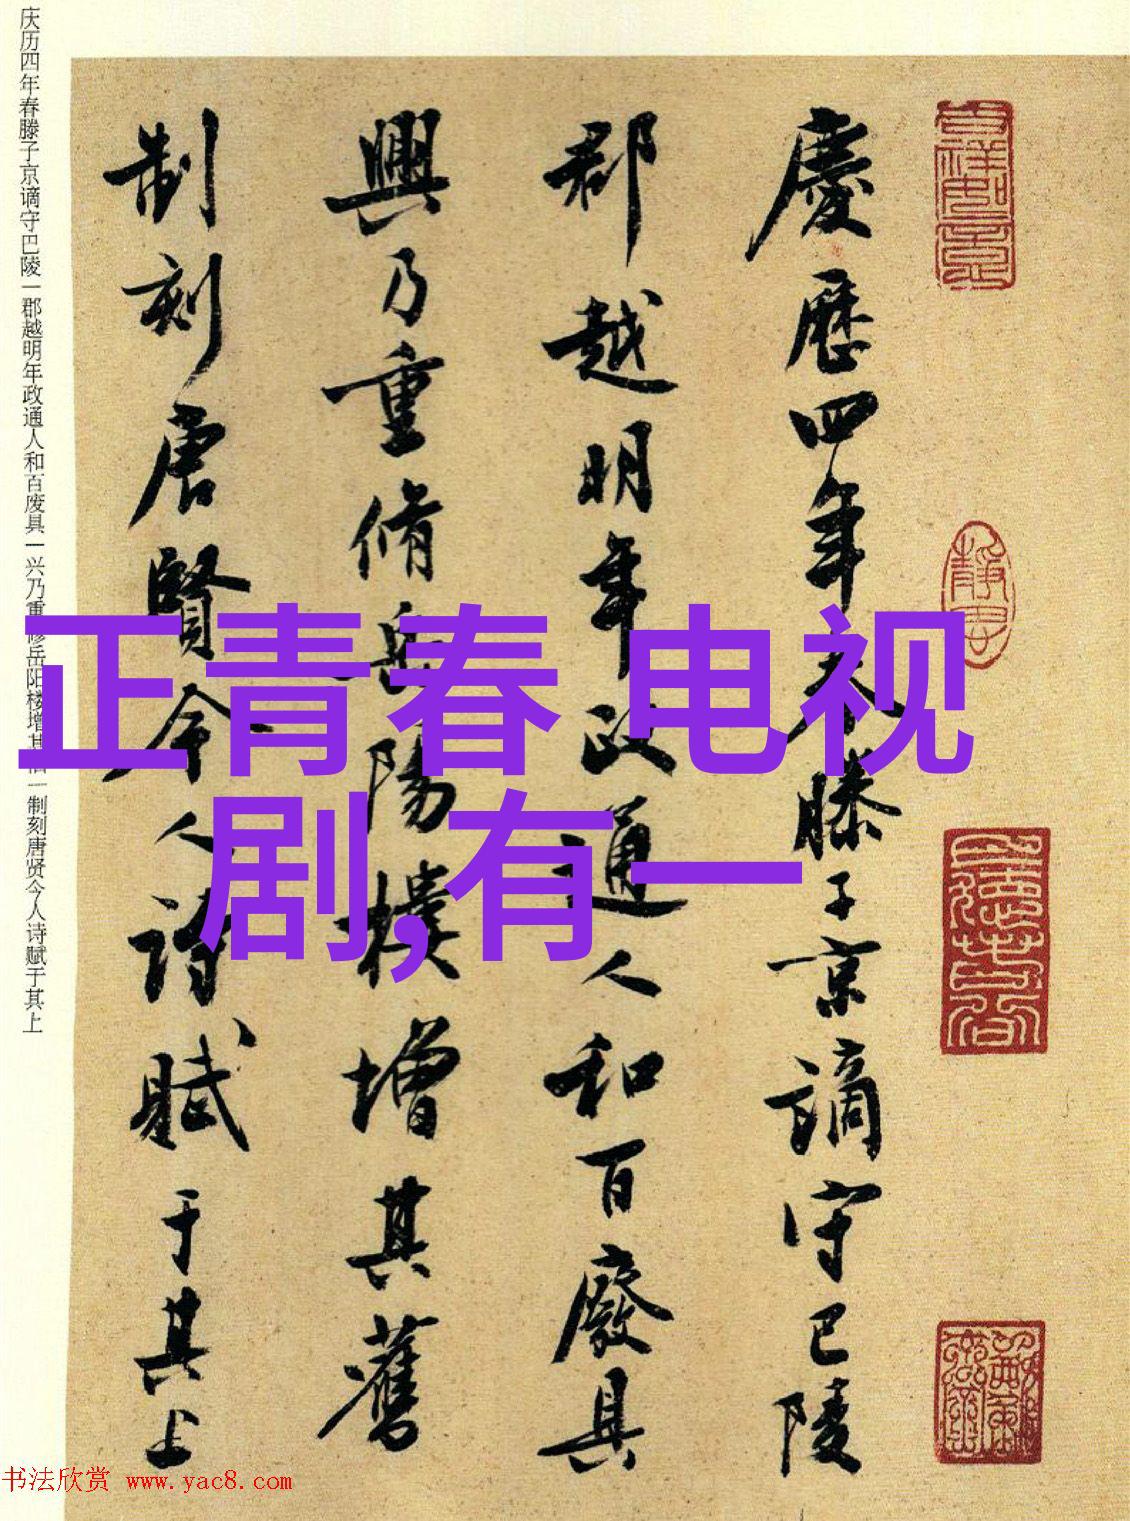 正青春 电视
剧,有一
慶歷四年春滕子京謫守巴陵
郡越明年政通人和百廢具
興乃重脩岳陽樓增其舊
制刻唐賢今人詩賦于其上
庆历四年春滕子京谪守巴陵一郡越明年政通人和百废具一兴乃重修岳阳楼增其旧一制刻唐贤今人诗赋于其上
书法欣赏 www.yac8.com